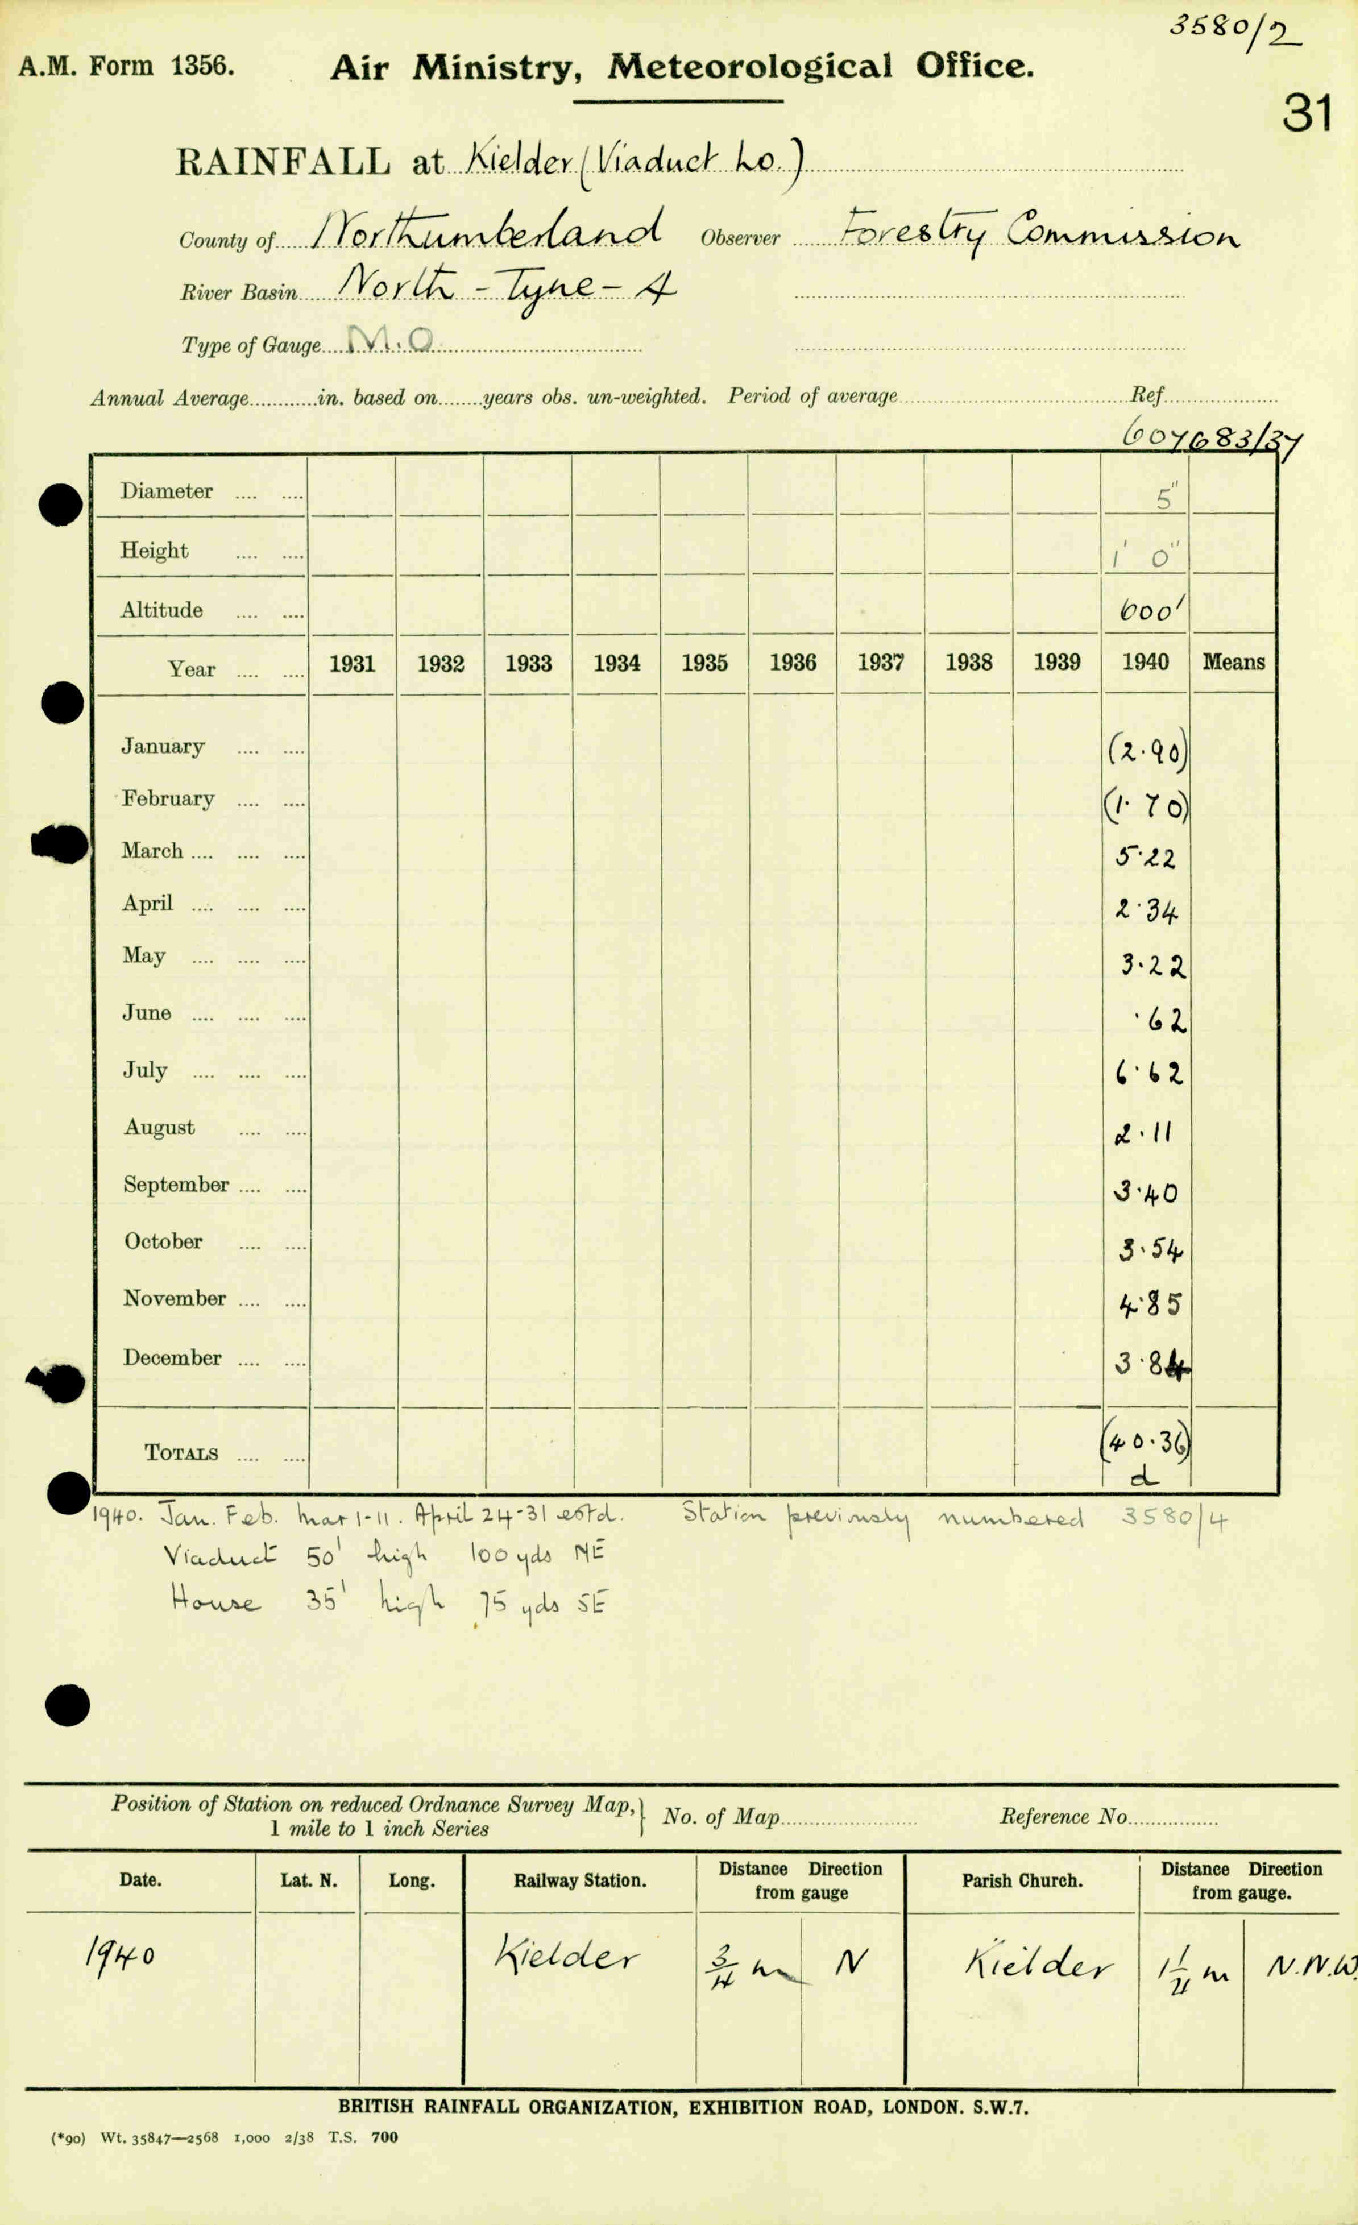 3580/2
A.M. Form 1356. Air Ministry, Meteorological Office.
31
RAINFALL at Kielder (Viaduct Ho.)
County of Northumberland Observer Forestry Commission
River Basin North - Tyne - 4
Type of Gauge M.O
Annual Average............in. based on........years obs. un-weighted. Period of average............Ref............
607683/37
Diameter .... .... 5"
Height .... .... 1' 0"
Altitude .... .... 600'
Year .... .... 1931 1932 1933 1934 1935 1936 1937 1938 1939 1940 Means
January .... .... (2.90)
February .... .... (1.70)
March .... .... .... 5.22
April .... .... .... 2.34
May .... .... .... 3.22
June .... .... .... .62
July .... .... .... 6.62
August .... .... 2.11
September .... .... 3.40
October .... .... 3.54
November .... .... 4.85
December .... .... 3.84
TOTALS .... .... (40.36)
d
1940. Jan. Feb. Mar 1-11. April 24-31 estd. Station previously numbered 3580/4
Viaduct 50' high 100 yds NE
House 35' high 75 yds SE
Position of Station on reduced Ordnance Survey Map, } No. of Map............ Reference No............
1 mile to 1 inch Series
Date. Lat. N. Long. Railway Station. Distance Direction from gauge Parish Church. Distance Direction from gauge.
1940 Kielder 3/4 m N Kielder 1 1/4 m N.N.W.
BRITISH RAINFALL ORGANIZATION, EXHIBITION ROAD, LONDON. S.W.7.
(*90) Wt. 35847—2568 1,000 2/38 T.S. 700